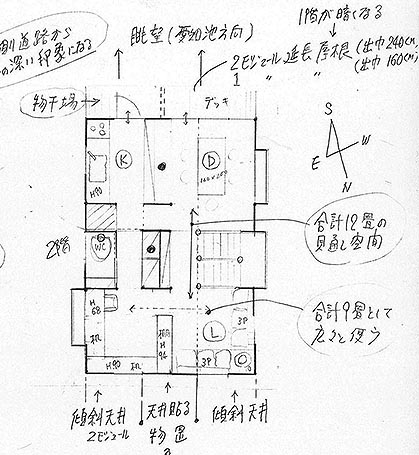 側道路から
の深い印象になる
眺望(愛知池方向)
1階が暗くなる
2モジュール延長屋根(出巾240cm)
1 〃 〃 (出巾160cm)
物干場
デッキ
S
W
E
N
K
D
H90
160×250
2階
WC
合計12畳の
見通し空間
合計9畳として
広々と使う
H
68
机
H
96
L
3P
3P
H90
机
傾斜天井
2モジュール
天井貼る
物置
傾斜天井